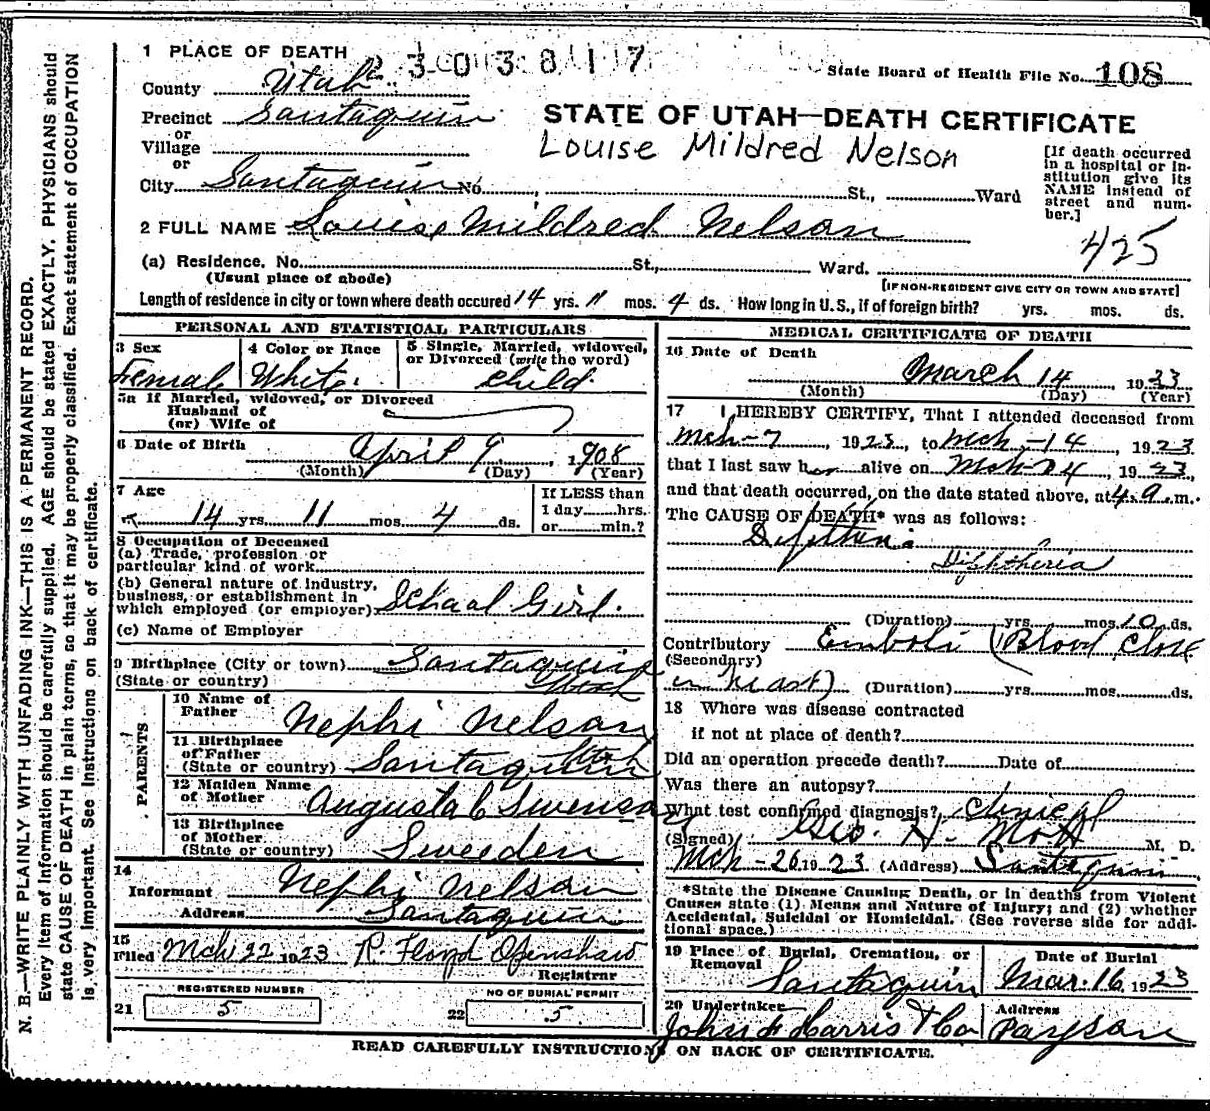 1 PLACE OF DEATH
2303817
State Board of Health File No. 108
County Utah
Precinct Santaquin
or
Village
or
City Santaquin No. , St., Ward
STATE OF UTAH—DEATH CERTIFICATE
Louise Mildred Nelson
[If death occurred
in a hospital or in-
stitution give its
NAME instead of
street and num-
ber.]
2 FULL NAME Louise Mildred Nelson
425
(a) Residence. No. St., Ward.
(Usual place of abode)
[IF NON-RESIDENT GIVE CITY OR TOWN AND STATE]
Length of residence in city or town where death occured 14 yrs. 11 mos. 4 ds. How long in U. S., if of foreign birth? yrs. mos. ds.
PERSONAL AND STATISTICAL PARTICULARS
3 Sex
Female
4 Color or Race
White.
5 Single, Married, widowed,
or Divorced (write the word)
Child.
5a If Married, widowed, or Divorced
Husband of
(or) Wife of
6 Date of Birth
April 9, 1908
(Month) (Day) (Year)
7 Age
14 yrs. 11 mos. 4 ds.
If LESS than
1 day hrs.
or min.?
8 Occupation of Deceased
(a) Trade, profession or
particular kind of work
(b) General nature of industry,
business, or establishment in
which employed (or employer) School Girl.
(c) Name of Employer
9 Birthplace (City or town) Santaquin
(State or country) Utah
PARENTS
10 Name of
Father Nephi Nelson
11 Birthplace
of Father
(State or country) Santaquin Utah
12 Maiden Name
of Mother Augusta C Swenson
13 Birthplace
of Mother
(State or country) Sweeden
14
Informant Nephi Nelson
Address Santaquin
15
Filed Mch 22 1923 R. Floyd Openshaw
Registrar
REGISTERED NUMBER
21 5
NO OF BURIAL PERMIT
22 5
MEDICAL CERTIFICATE OF DEATH
16 Date of Death
March 14, 1923
(Month) (Day) (Year)
17 I HEREBY CERTIFY, That I attended deceased from
Mch-7, 1923, to Mch-14, 1923
that I last saw her alive on Mch 14, 1923,
and that death occurred, on the date stated above, at 4 a.m.
The CAUSE OF DEATH* was as follows:
Diphtheria
(Duration) yrs. mos. 10 ds.
Contributory Emboli (Blood Clot
(Secondary)
in heart) (Duration) yrs. mos. ds.
18 Where was disease contracted
if not at place of death?
Did an operation precede death? Date of
Was there an autopsy?
What test confirmed diagnosis? Clinical
(Signed) Geo. H. Mott M. D.
Mch-26 1923 (Address) Santaquin
*State the Disease Causing Death, or in deaths from Violent
Causes state (1) Means and Nature of Injury; and (2) whether
Accidental, Suicidal or Homicidal. (See reverse side for addi-
tional space.)
19 Place of Burial, Cremation, or
Removal Santaquin
Date of Burial
Mar. 16, 1923
20 Undertaker
John F Harris & Co
Address
Payson
READ CAREFULLY INSTRUCTIONS ON BACK OF CERTIFICATE.
N. B.—WRITE PLAINLY WITH UNFADING INK—THIS IS A PERMANENT RECORD.
Every item of information should be carefully supplied. AGE should be stated EXACTLY. PHYSICIANS should
state CAUSE OF DEATH in plain terms, so that it may be properly classified. Exact statement of OCCUPATION
is very important. See instructions on back of certificate.